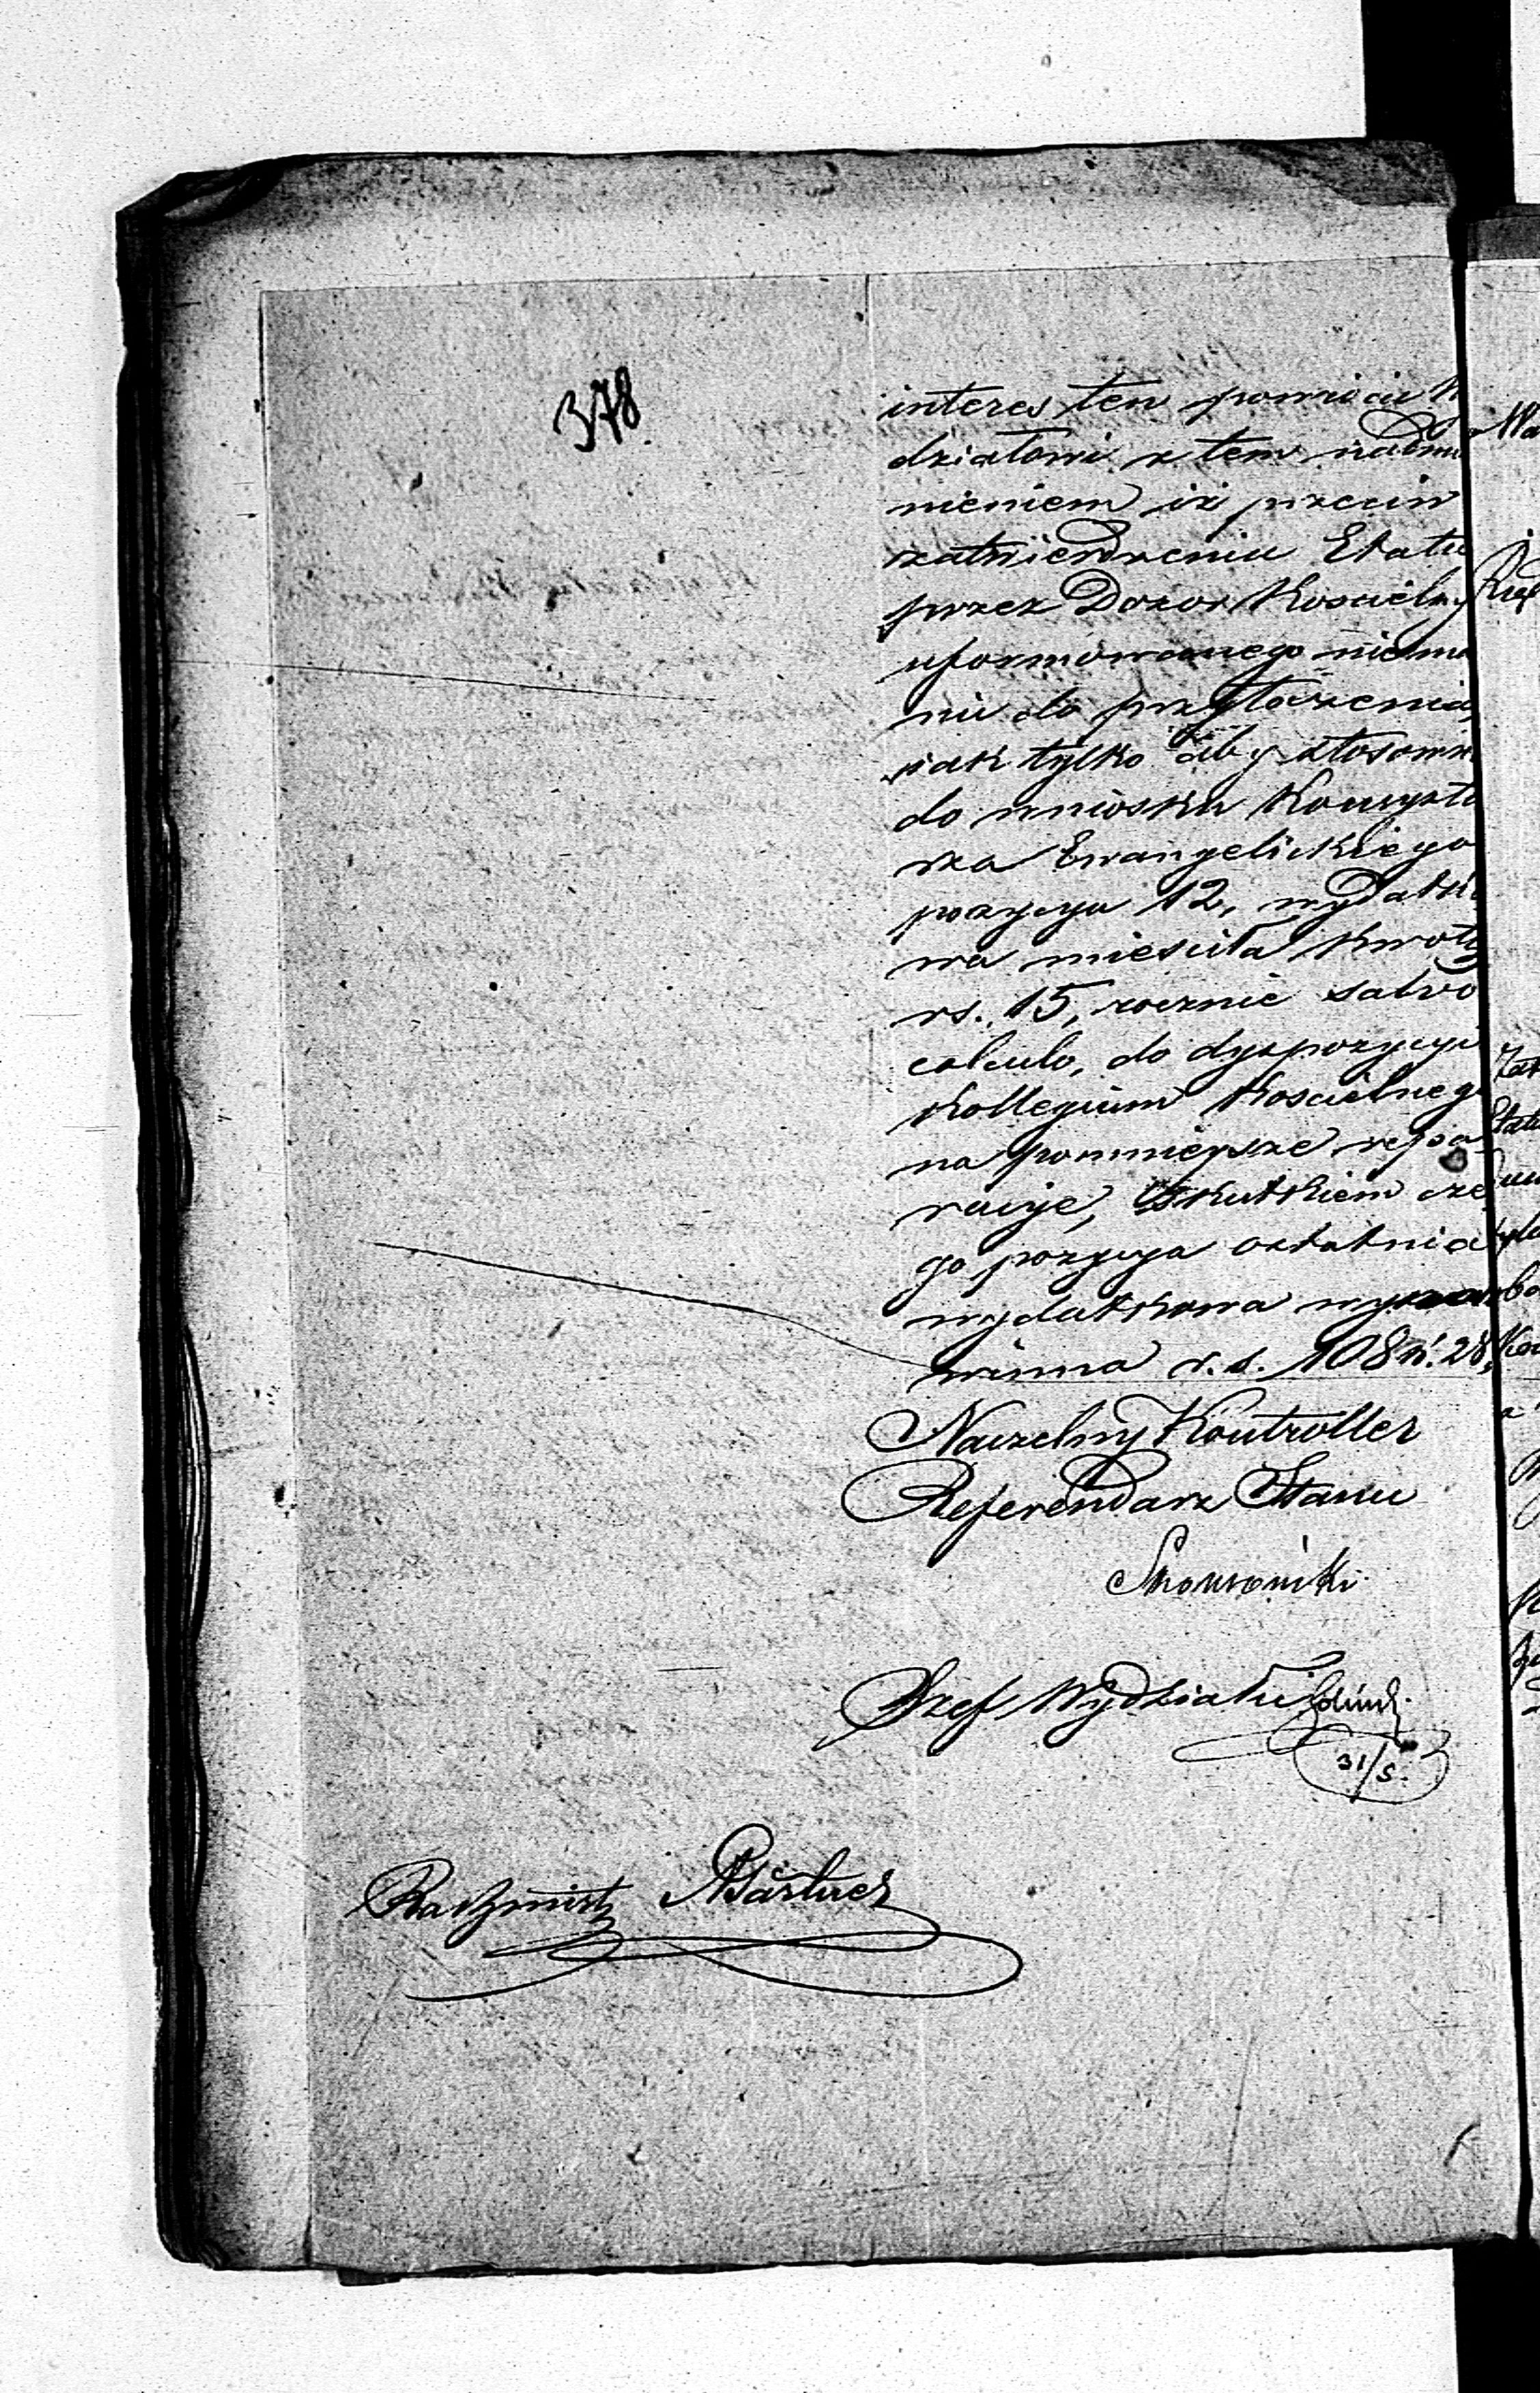 378
interes ten powraca W
działowi z tem nadmie
nieniem iż przeciw
zatwierdzeniu Etatu
przez Dozor Koscielny
uformowanego niema
nic do przytoczenia,
jak tylko aby stosownie
do wniosku Konsysto
rza Ewangelickiego
pozycya 12, wydatko
wa mieściła kwotę
rs. 15, rocznie salvo
calculo, do dyspozycyi
Kollegium Koscielnego
na pomniejsze repa
racye, skutkiem cze
go pozycya ostatnia
wydatkowa wy
winna r.s. 108 k. 28,
Naczelny Kontroller
Referendarz Stanu
Szef Wydziału
31/5.